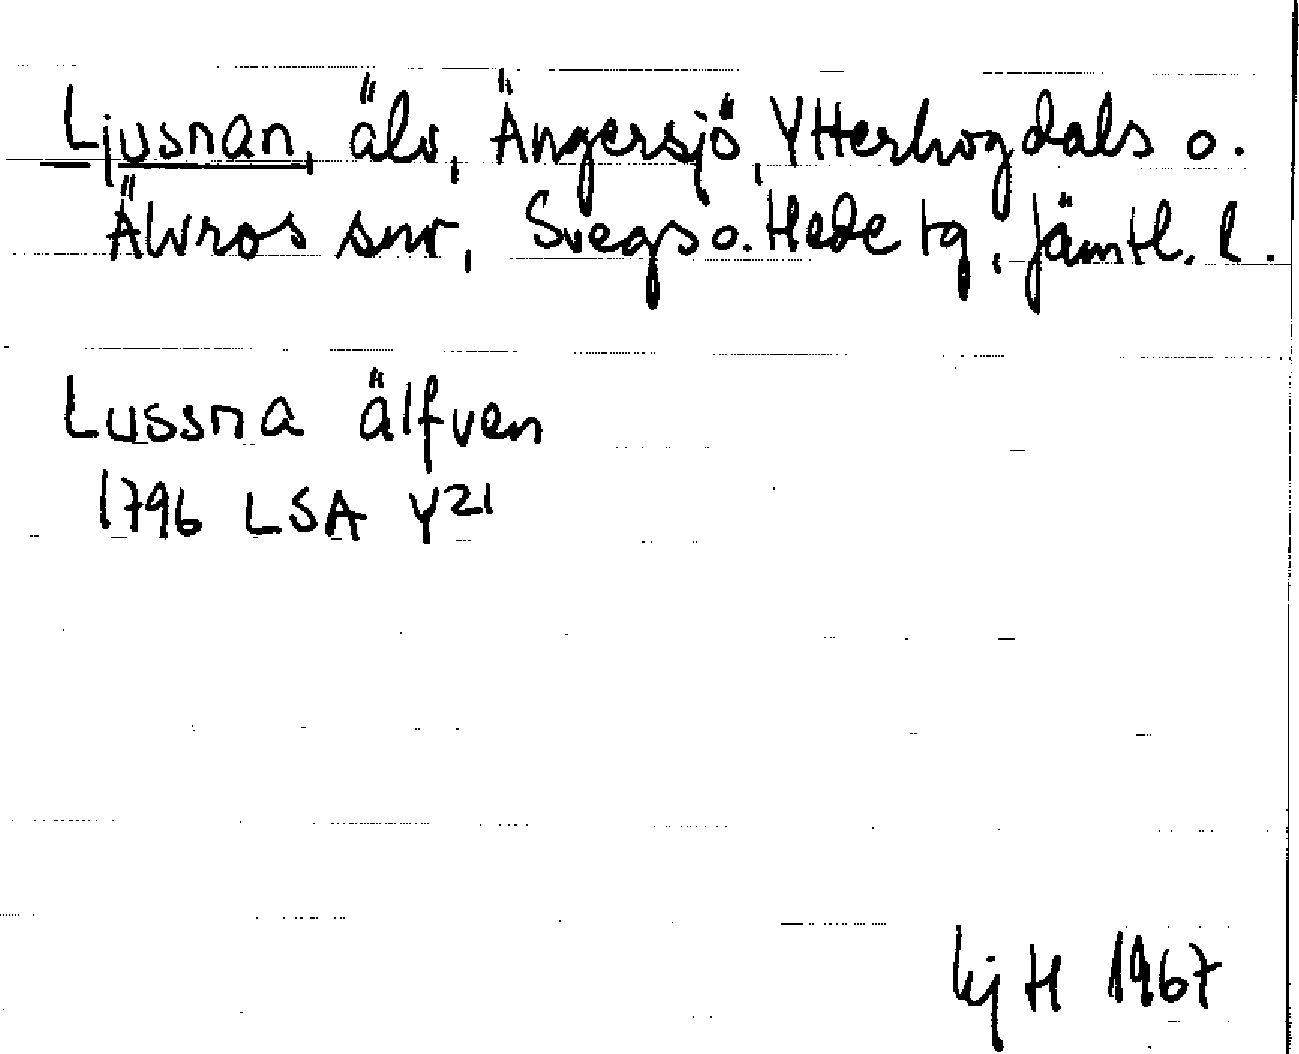 Ljusnan, älv, Ängersjö, Ytterhogdals o.
Älvros snr, Svegs o. Hede tg, Jämtl. l.
Lussna älfven
1796 LSA Y21
Lj H 1967